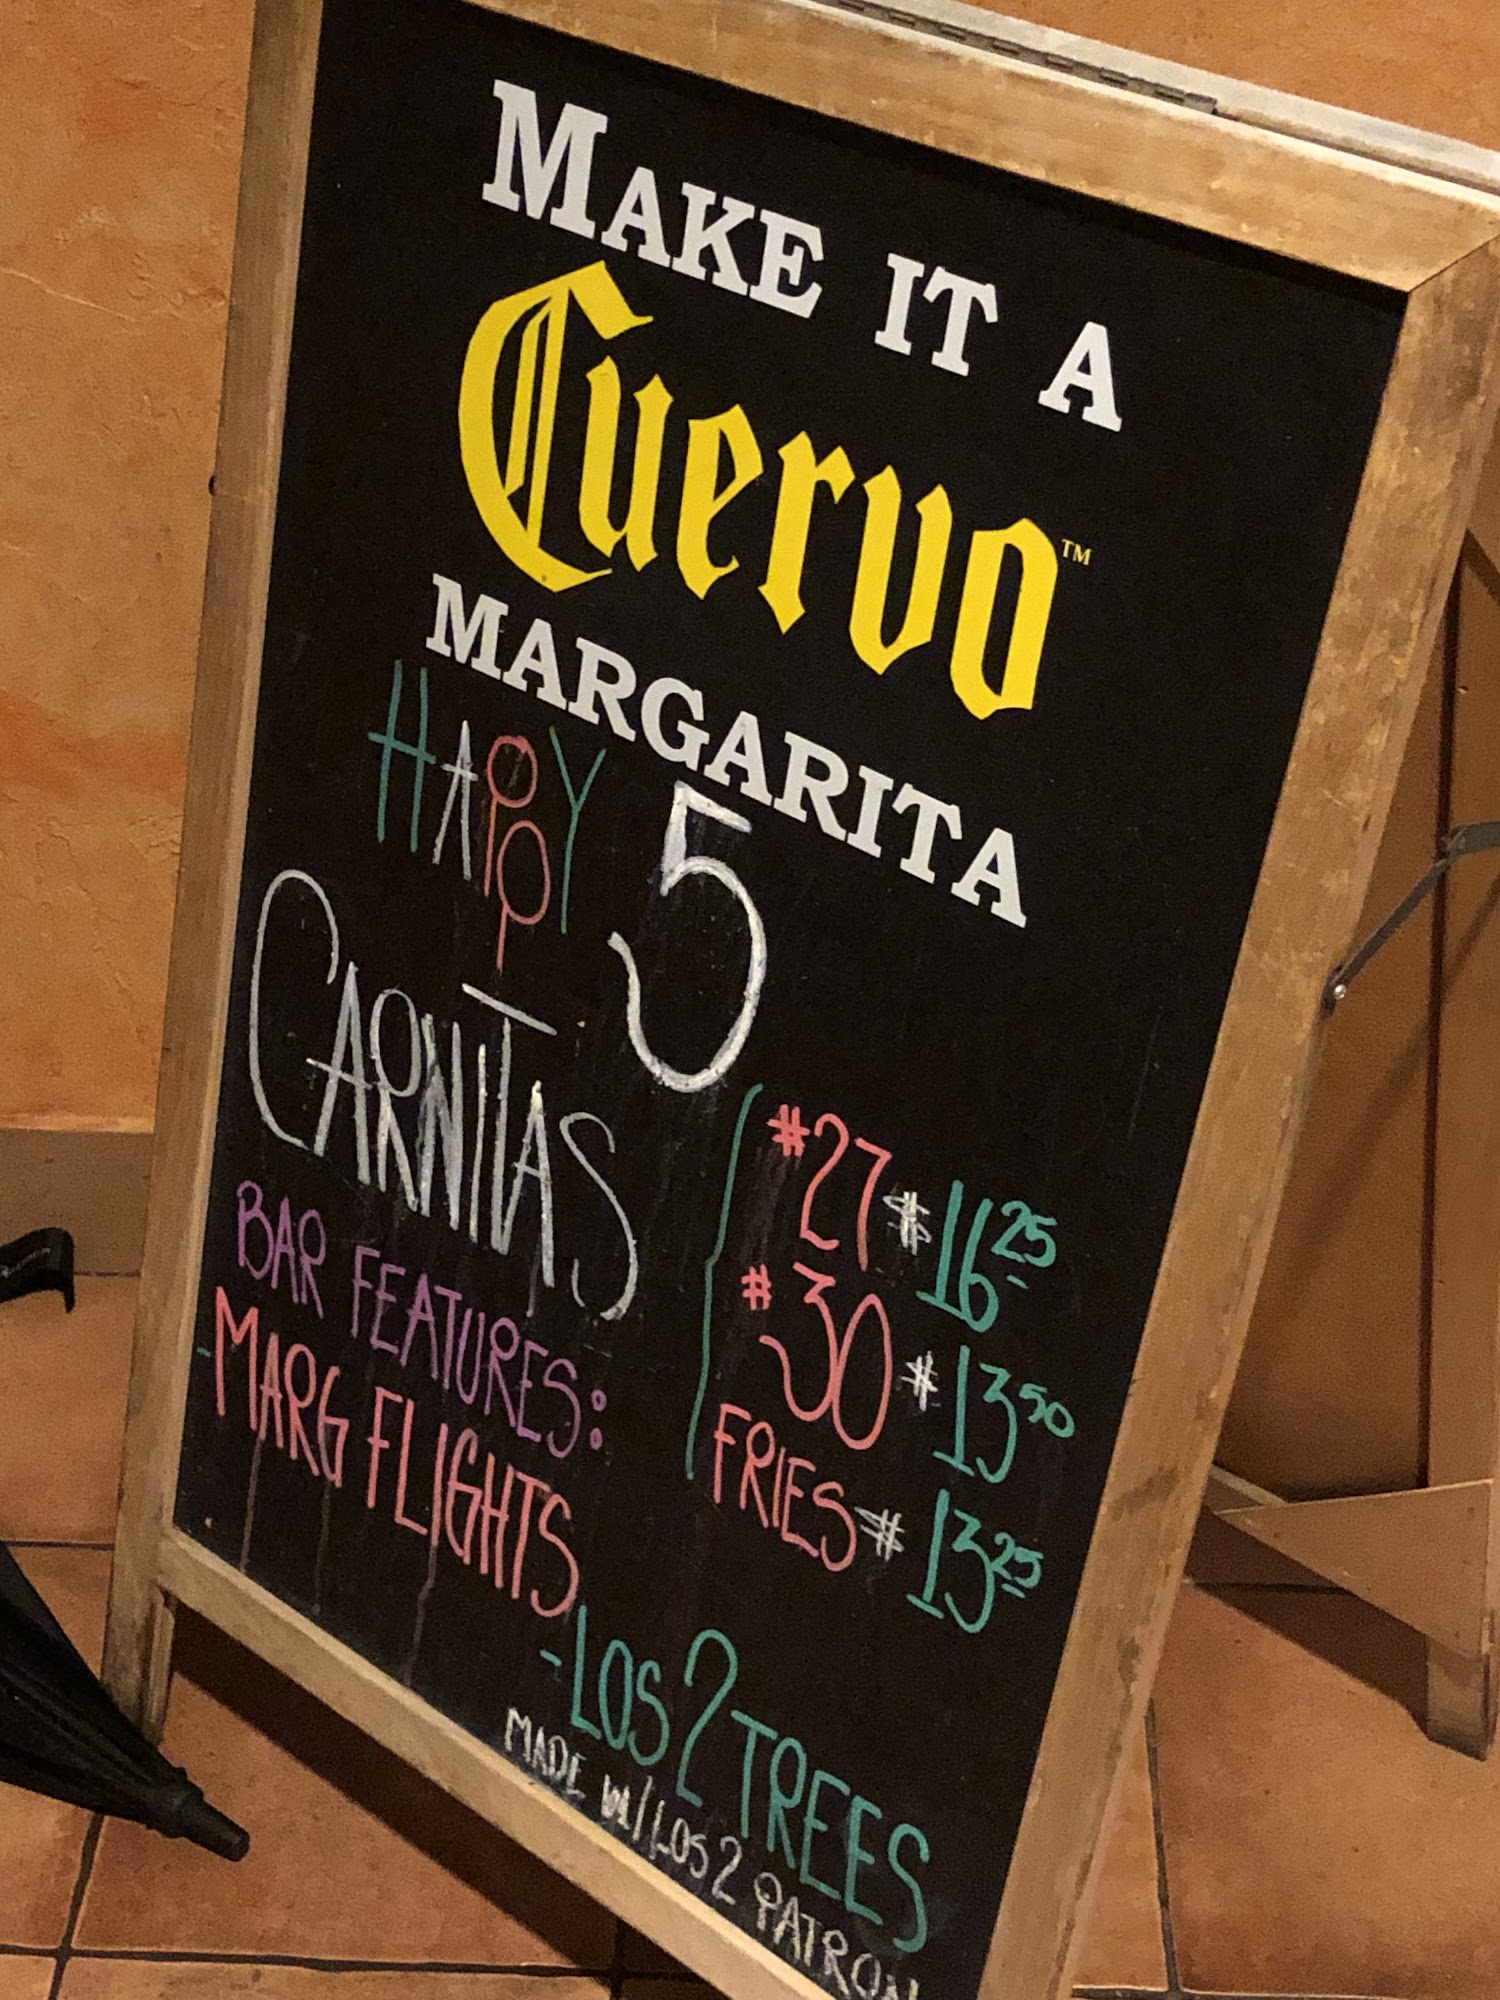 MAKE IT A
Cuervo™
MARGARITA
HAPPY 5
CARNITAS
#27 $16.25
#30 $13.50
FRIES $13.25
BAR FEATURES:
-MARG FLIGHTS
-LOS 2 TREES
MADE W/ LOS 2 PATRON